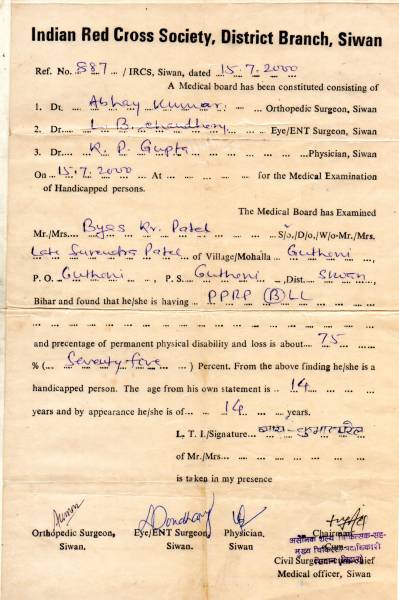 Indian Red Cross Society, District Branch, Siwan
Ref. No. 887 / IRCS, Siwan, dated 15.7.2000
A Medical board has been constituted consisting of
1. Dr. Abhay Kumar Orthopedic Surgeon, Siwan
2. Dr. L. B. Chaudhary Eye/ENT Surgeon, Siwan
3. Dr. R. P. Gupta Physician, Siwan
On 15.7.2000 At for the Medical Examination
of Handicapped persons.
The Medical Board has Examined
Mr./Mrs. Byas Kr. Patel S/o,/D/o,/W/o-Mr./Mrs.
Late Surendra Patel of Village/Mohalla Guthani,
P. O. Guthani, P. S. Guthani, Dist. Siwan,
Bihar and found that he/she is having PPRP (B) LL
and precentage of permanent physical disability and loss is about 75
% ( Seventy five ) Percent. From the above finding he/she is a
handicapped person. The age from his own statement is 14
years and by appearance he/she is of 14 years.
L, T. I./Signature ब्यास कुमार पटेल
of Mr./Mrs
is taken in my presence
Orthopedic Surgeon, Eye/ENT Surgeon, Physician, Chairman
Siwan. Siwan. Siwan
असैनिक शल्य चिकित्सक-सह-
मुख्य चिकित्सा पदाधिकारी
Civil Surgeon Chief
Medical officer, Siwan